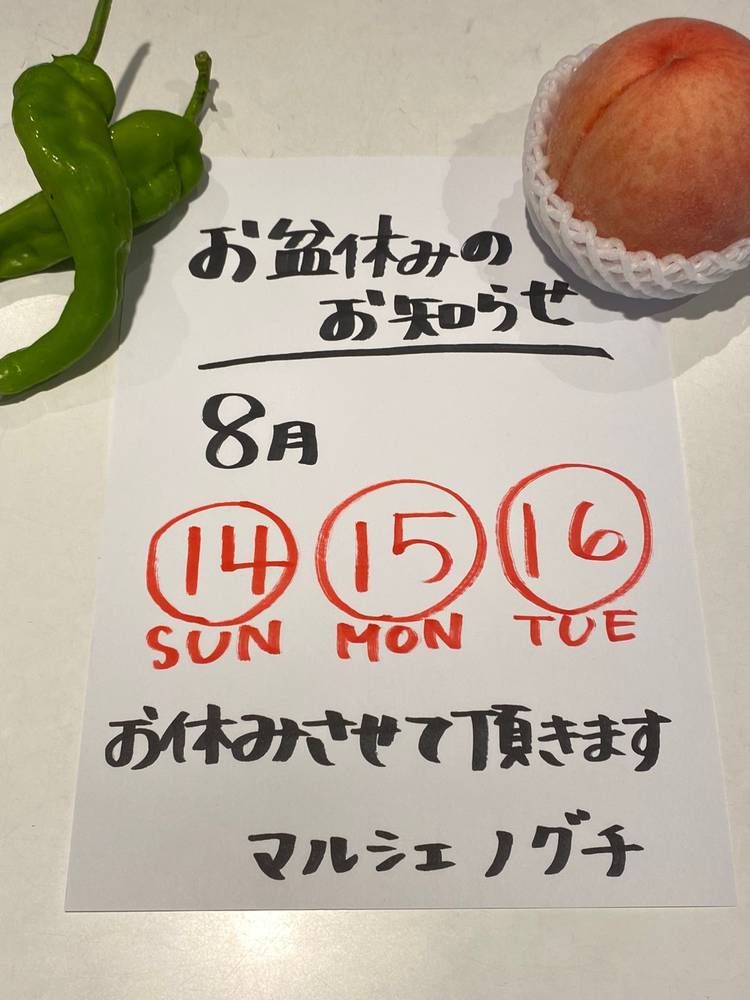 お盆休みの
お知らせ
8月
14 15 16
SUN MON TUE
お休みさせて頂きます
マルシェ ノグチ